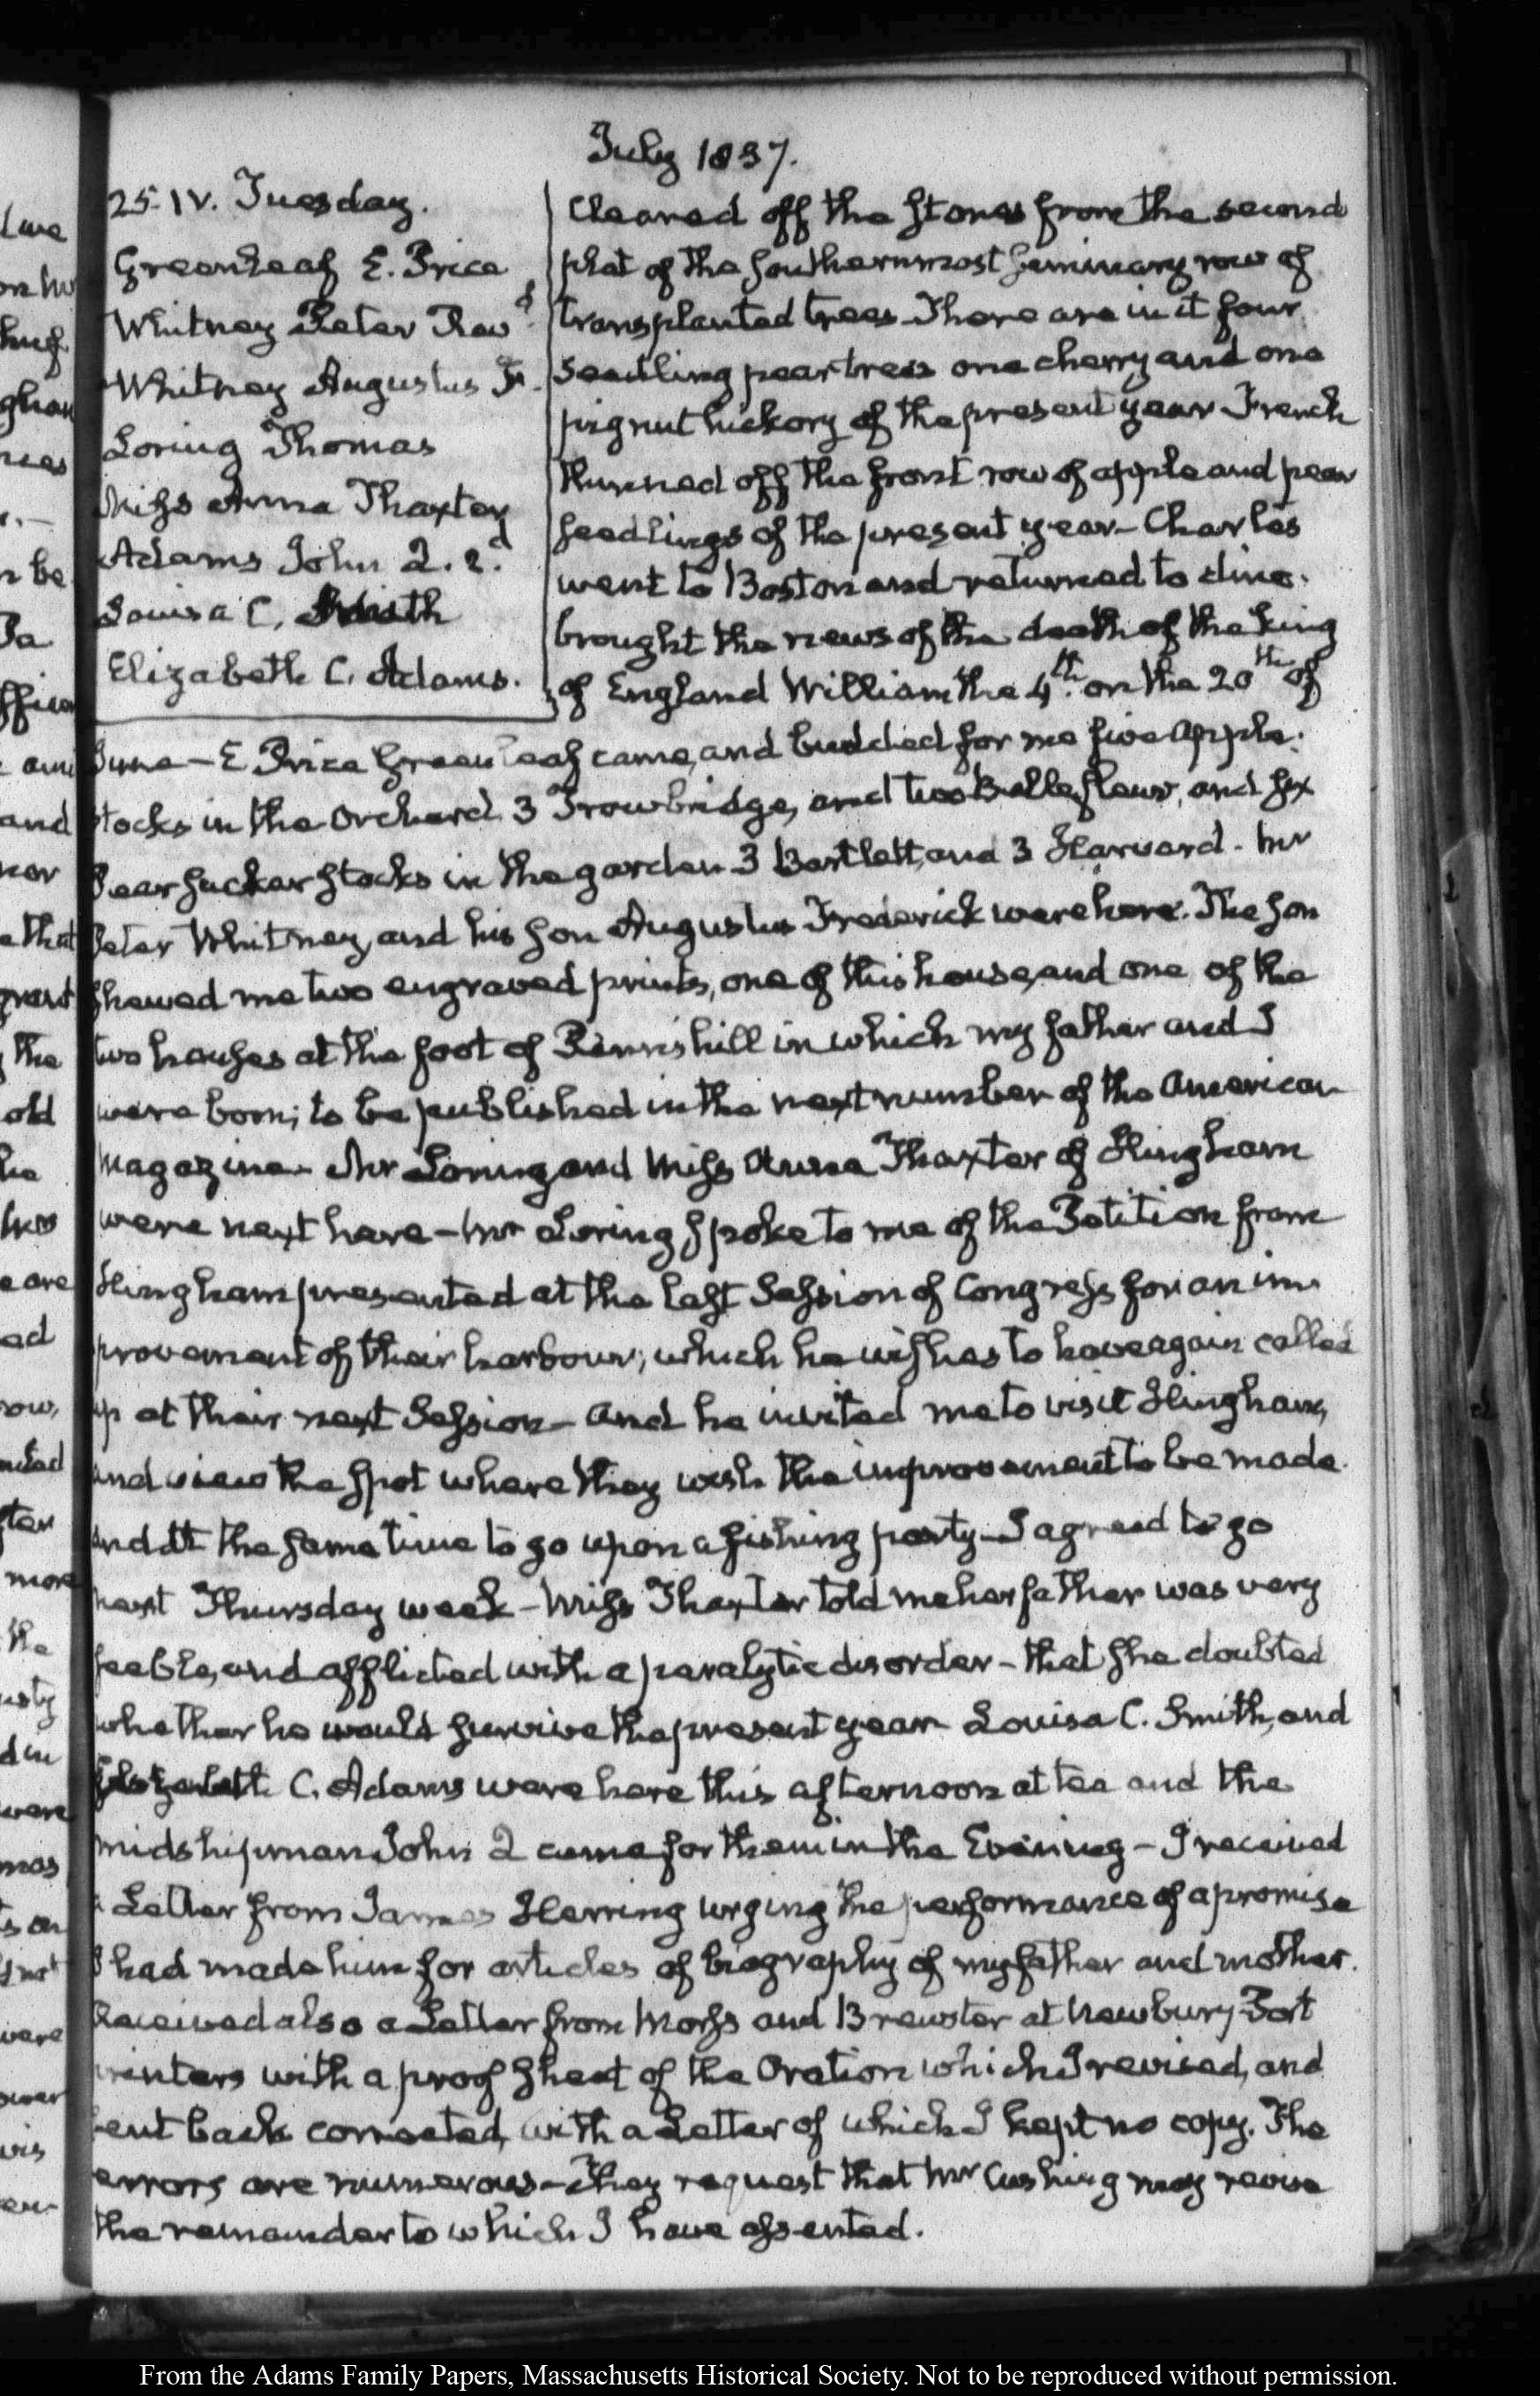 July 1837.
25. IV. Tuesday.
Greenleaf E. Price
Whitney Peter Revd
Whitney Augustus F.
Loring Thomas
Miss Anna Thaxter
Adams John Q. 2d
Louisa C. Smith
Elizabeth C. Adams.
Cleared off the stones from the second
plat of the Southernmost Seminary row of
transplanted trees. There are in it four
seedling pear trees one cherry and one
pignut hickory of the present year French
thinned off the front row of apple and pear
seedlings of the present year – Charles
went to Boston and returned to dine.
brought the news of the death of the King
of England William the 4th. on the 20th of
June – E Price Greenleaf came, and budded for me five Apple.
stocks in the Orchard. 3 Trowbridge, and two Bellefleur, and six
Pear sucker stocks in the garden 3 Bartlett, and 3 Harvard. Mr
Peter Whitney, and his son Augustus Frederick were here. The son
shewed me two engraved prints, one of this house, and one of the
two houses at the foot of Penn's hill in which my father and I
were born; to be published in the next number of the American
Magazine – Mr Loring and Miss Anna Thaxter of Hingham
were next here – Mr Loring spoke to me of the Petition from
Hingham presented at the last Session of Congress for an im
provement of their harbour; which he wishes to have again called
up at their next Session – and he invited me to visit Hingham,
and view the spot where they wish the improvement to be made.
and at the same time to go upon a fishing party – I agreed to go
next Thursday week – Miss Thaxter told me her father was very
feeble, and afflicted with a paralytic disorder – that she doubted
whether he would survive the present year Louisa C. Smith, and
Elizabeth C. Adams were here this afternoon at tea and the
midshipman John Q came for them in the Evening – I received
a Letter from James Herring urging the performance of a promise
I had made him for articles of biography of my father and mother.
Received also a Letter from Morss and Brewster at Newbury-Port
printers with a proof sheet of the Oration which I revised, and
sent back corrected, with a Letter of which I kept no copy. The
errors are numerous – They request that Mr Cushing may revise
the remainder to which I have assented.
From the Adams Family Papers, Massachusetts Historical Society. Not to be reproduced without permission.